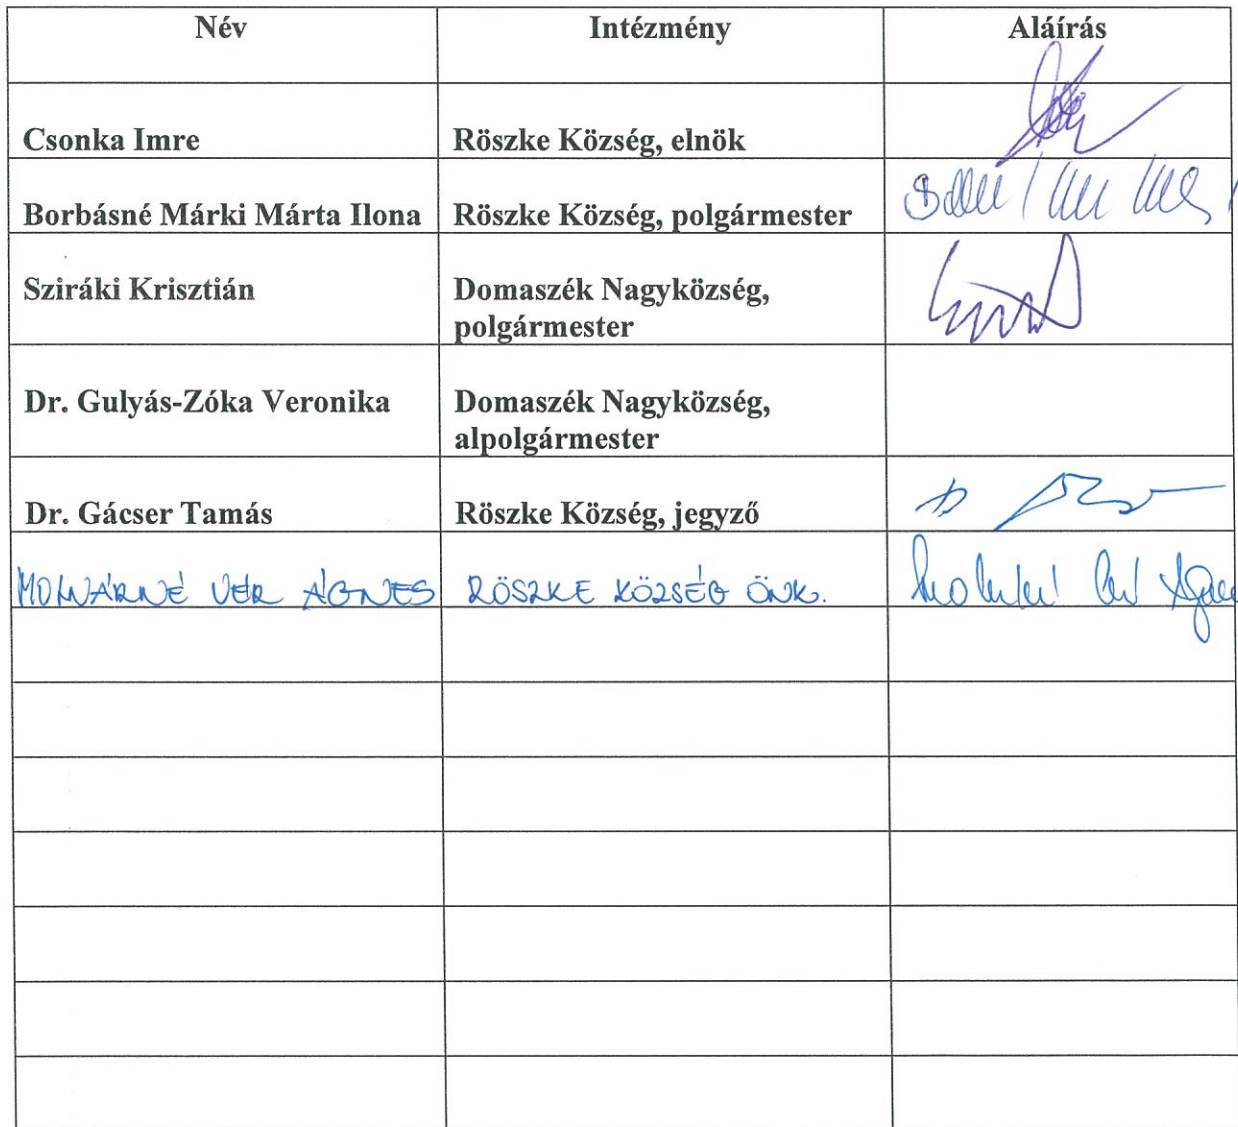 Név Intézmény Aláírás
Csonka Imre Röszke Község, elnök
Borbásné Márki Márta Ilona Röszke Község, polgármester
Sziráki Krisztián Domaszék Nagyközség,
polgármester
Dr. Gulyás-Zóka Veronika Domaszék Nagyközség,
alpolgármester
Dr. Gácser Tamás Röszke Község, jegyző
MOLNÁRNÉ VÉR ÁGNES RÖSZKE KÖZSÉG ÖNK.